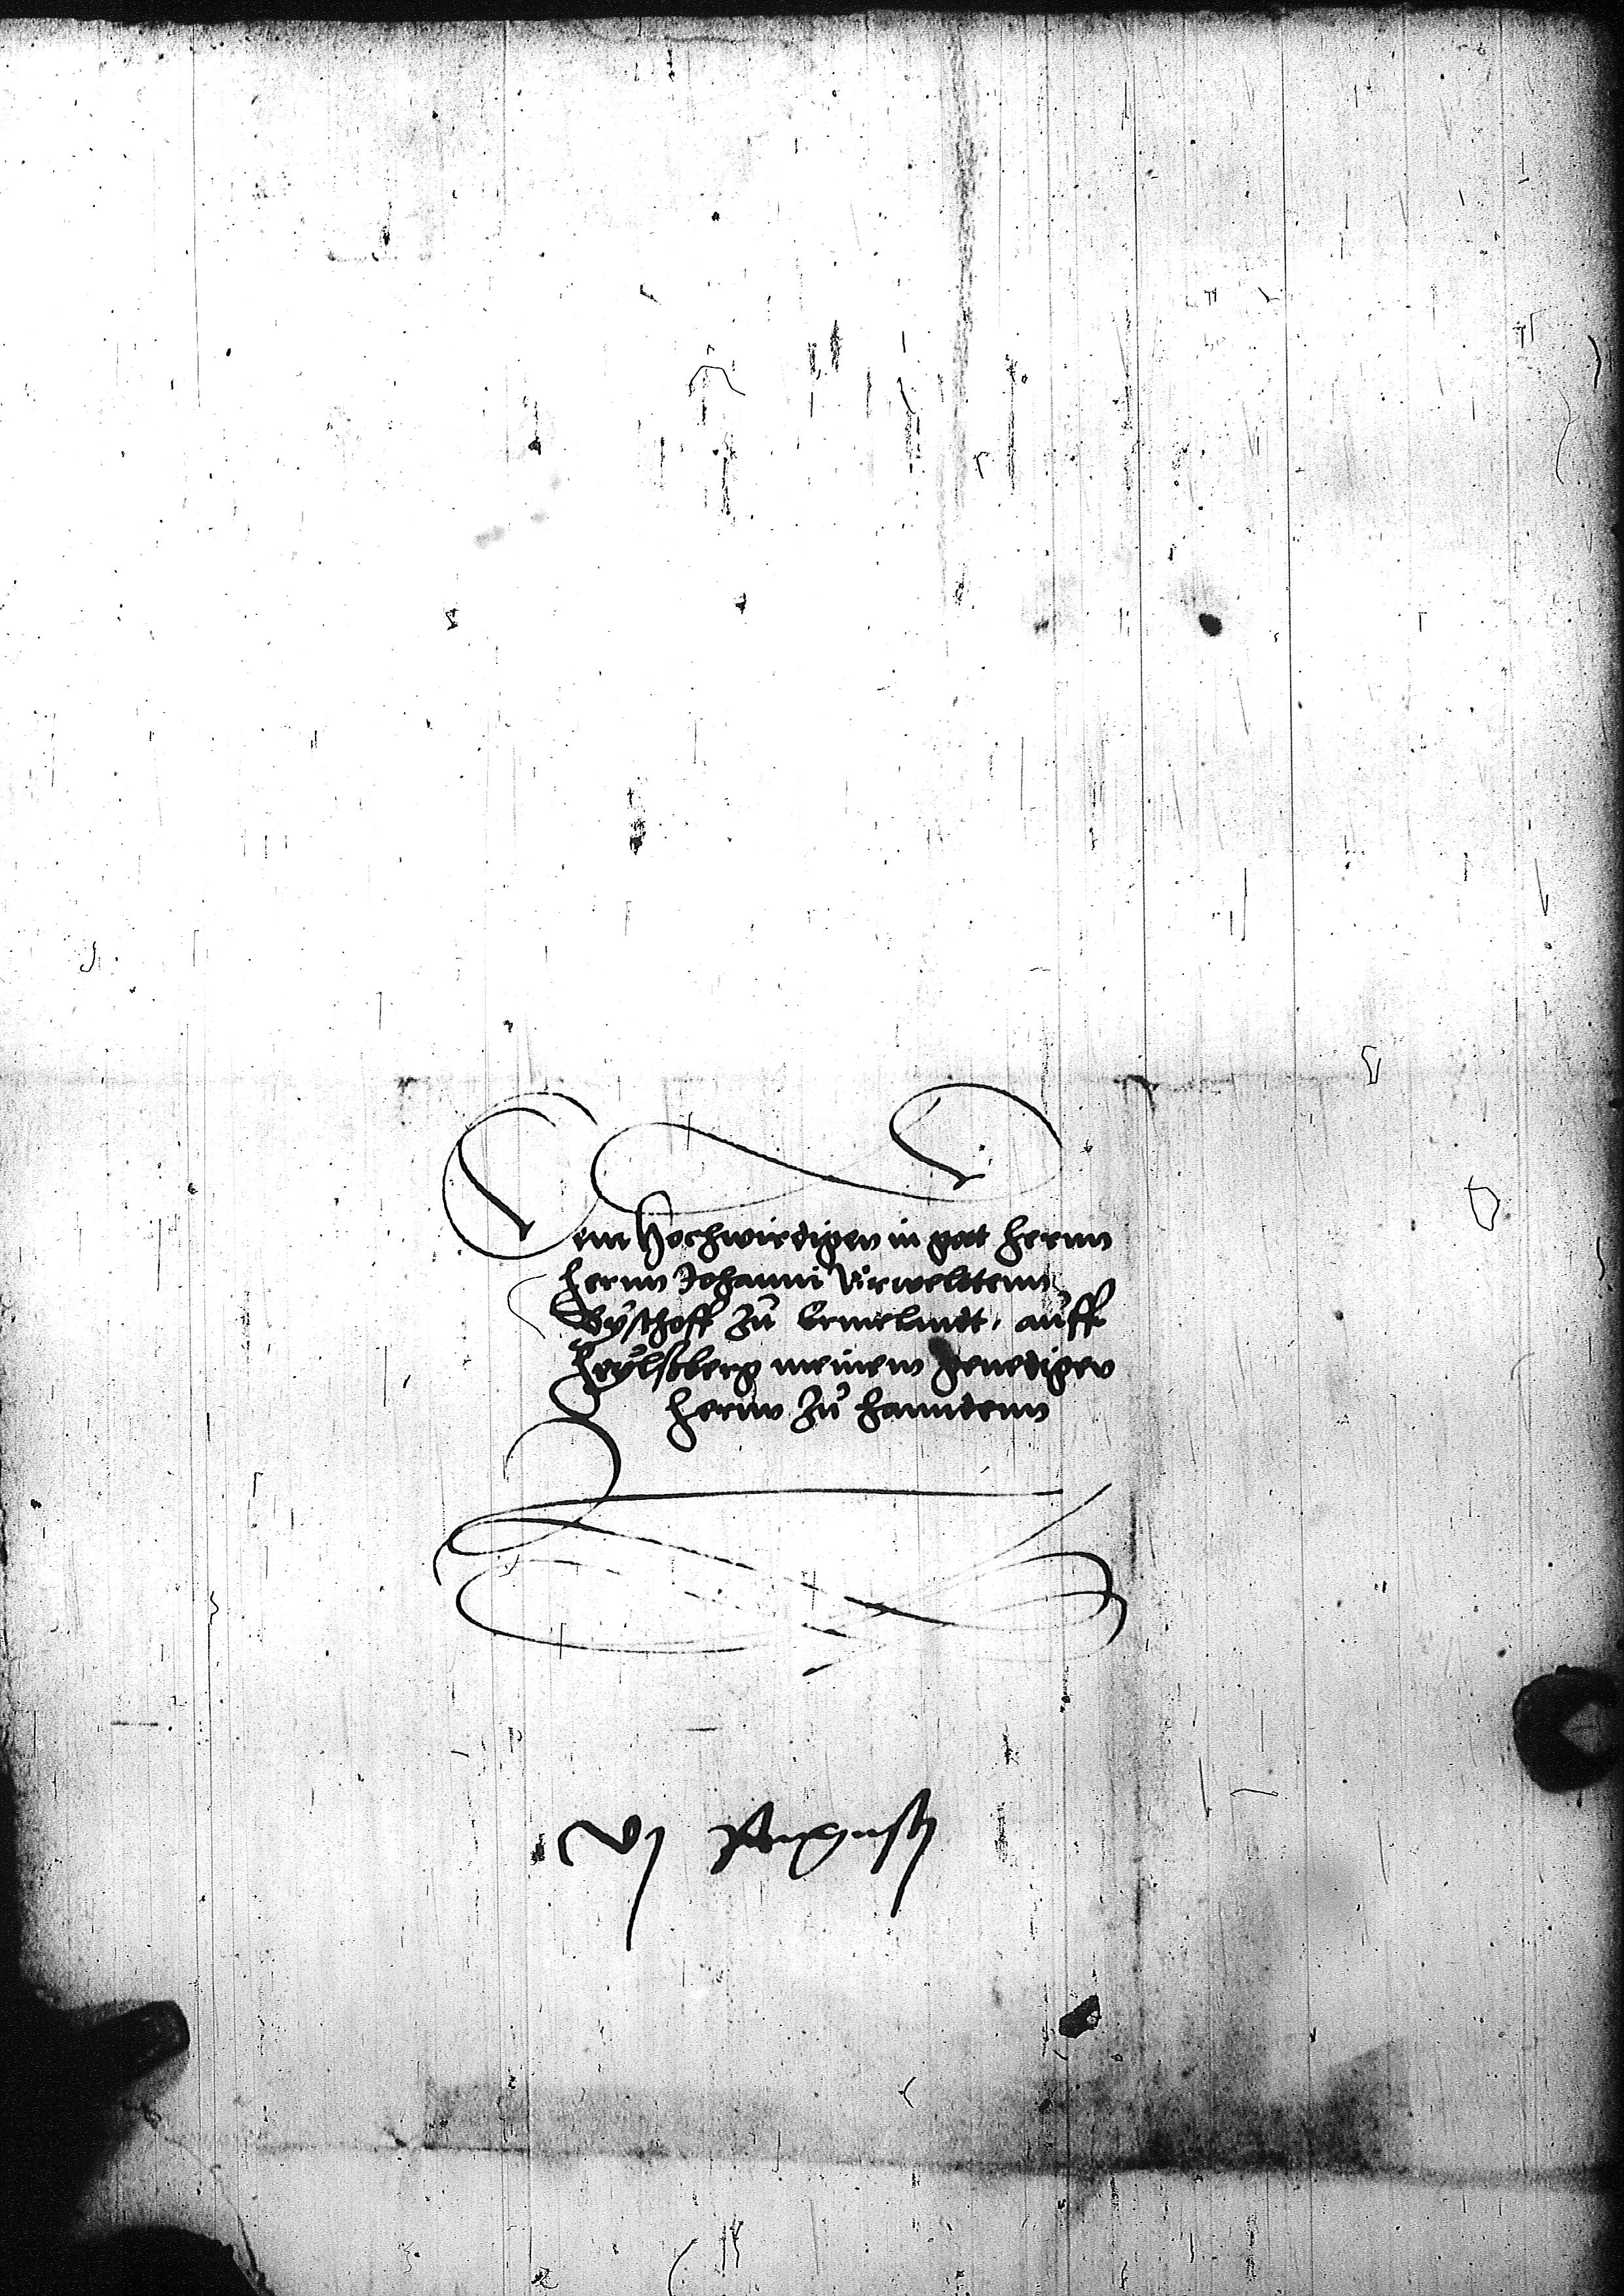 Dem Hochwirdigen in got hernn
hernn Johanni Erweltenn
Byschoff zu Ermelandt, auff
Heylssberg meinem genedigen
hernn zu hanndenn
Vj Augusti